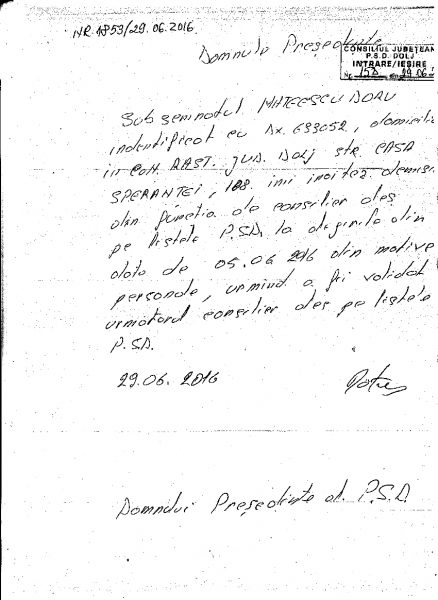 NR. 4853/29.06.2016
Domnule Președinte
CONSILIUL JUDEȚEAN
P.S.D. DOLJ
INTRARE/IEȘIRE
Nr. 158 din 29.06
Subsemnatul MATEESCU DORU
indentificat cu Dx. 633052, domicilia
în com. RAST. jud. DOLJ str. CASA
SPERANTEI, 188. imi inaitez demisia
din funcția de consilier ales
pe listele P.S.D. la alegerile din
data de 05.06 2016 din motive
personale, urmind a fi validat
următorul consilier ales pe listele
P.S.D.
29.06. 2016
Domnului Președinte al P.S.D.